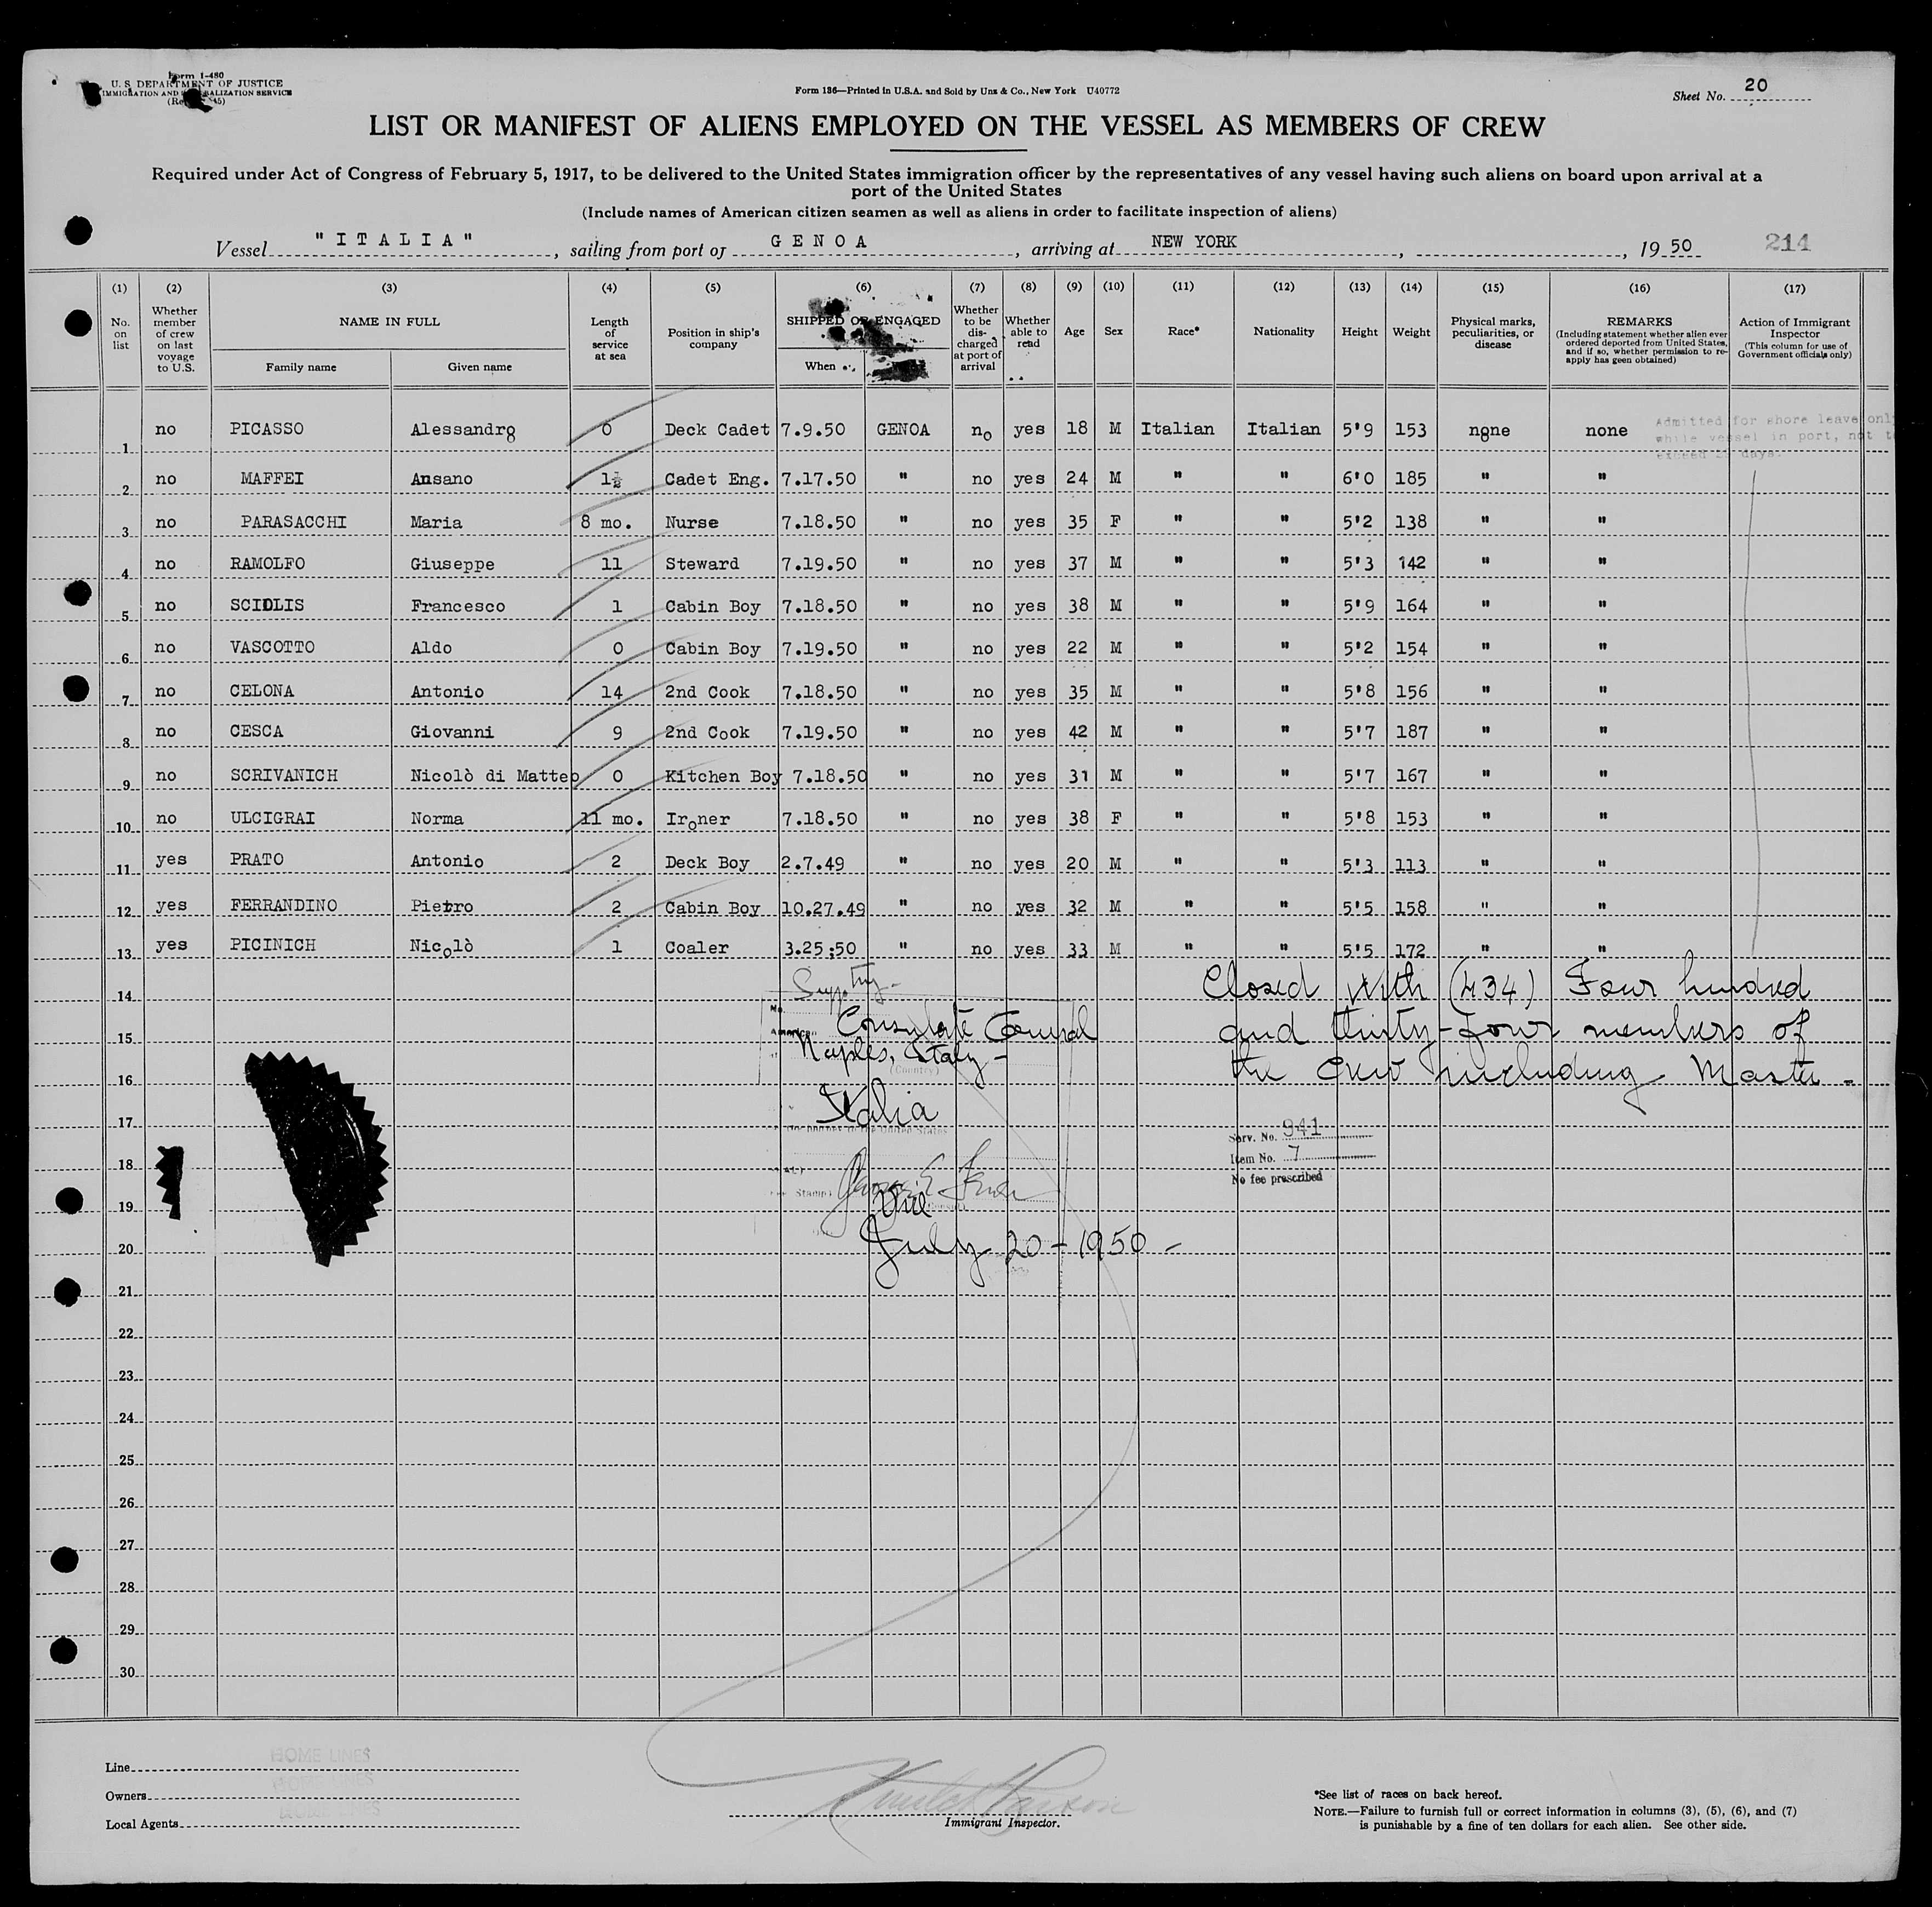 Form I-480
U. S. DEPARTMENT OF JUSTICE
IMMIGRATION AND NATURALIZATION SERVICE
Form 136—Printed in U.S.A. and Sold by Unz & Co., New York U40772
Sheet No. 20
LIST OR MANIFEST OF ALIENS EMPLOYED ON THE VESSEL AS MEMBERS OF CREW
Required under Act of Congress of February 5, 1917, to be delivered to the United States immigration officer by the representatives of any vessel having such aliens on board upon arrival at a
port of the United States
(Include names of American citizen seamen as well as aliens in order to facilitate inspection of aliens)
Vessel "ITALIA", sailing from port of GENOA, arriving at NEW YORK, , 1950 214
(1) (2) (3) (4) (5) (6) (7) (8) (9) (10) (11) (12) (13) (14) (15) (16) (17)
No. on list
Whether member of crew on last voyage to U.S.
NAME IN FULL
Family name Given name
Length of service at sea
Position in ship's company
SHIPPED OR ENGAGED
When
Whether to be discharged at port of arrival
Whether able to read
Age
Sex
Race*
Nationality
Height
Weight
Physical marks, peculiarities, or disease
REMARKS
(Including statement whether alien ever ordered deported from United States, and if so, whether permission to re-apply has geen obtained)
Action of Immigrant Inspector
(This column for use of Government officials only)
1 no PICASSO Alessandro 0 Deck Cadet 7.9.50 GENOA no yes 18 M Italian Italian 5'9 153 none none
Admitted for shore leave only
while vessel in port, not t
exceed 29 days.
2 no MAFFEI Ansano 1½ Cadet Eng. 7.17.50 " no yes 24 M " " 6'0 185 " "
3 no PARASACCHI Maria 8 mo. Nurse 7.18.50 " no yes 35 F " " 5'2 138 " "
4 no RAMOLFO Giuseppe 11 Steward 7.19.50 " no yes 37 M " " 5'3 142 " "
5 no SCIOLIS Francesco 1 Cabin Boy 7.18.50 " no yes 38 M " " 5'9 164 " "
6 no VASCOTTO Aldo 0 Cabin Boy 7.19.50 " no yes 22 M " " 5'2 154 " "
7 no CELONA Antonio 14 2nd Cook 7.18.50 " no yes 35 M " " 5'8 156 " "
8 no CESCA Giovanni 9 2nd Cook 7.19.50 " no yes 42 M " " 5'7 187 " "
9 no SCRIVANICH Nicolò di Matteo 0 Kitchen Boy 7.18.50 " no yes 31 M " " 5'7 167 " "
10 no ULCIGRAI Norma 11 mo. Ironer 7.18.50 " no yes 38 F " " 5'8 153 " "
11 yes PRATO Antonio 2 Deck Boy 2.7.49 " no yes 20 M " " 5'3 113 " "
12 yes FERRANDINO Pietro 2 Cabin Boy 10.27.49 " no yes 32 M " " 5'5 158 " "
13 yes PICINICH Nicolò 1 Coaler 3.25;50 " no yes 33 M " " 5'5 172 " "
14
15
16
17
18
19
20
21
22
23
24
25
26
27
28
29
30
Closed with (434) Four hundred
and thirty-four members of
the Crew including Master -
No.
American Consulate General
Naples, Italy -
(Country)
Italia
July 20 - 1950 -
Serv. No. 941
Item No. 7
No fee prescribed
Line HOME LINES
Owners HOME LINES
Local Agents HOME LINES
Immigrant Inspector.
*See list of races on back hereof.
NOTE.—Failure to furnish full or correct information in columns (3), (5), (6), and (7)
is punishable by a fine of ten dollars for each alien. See other side.